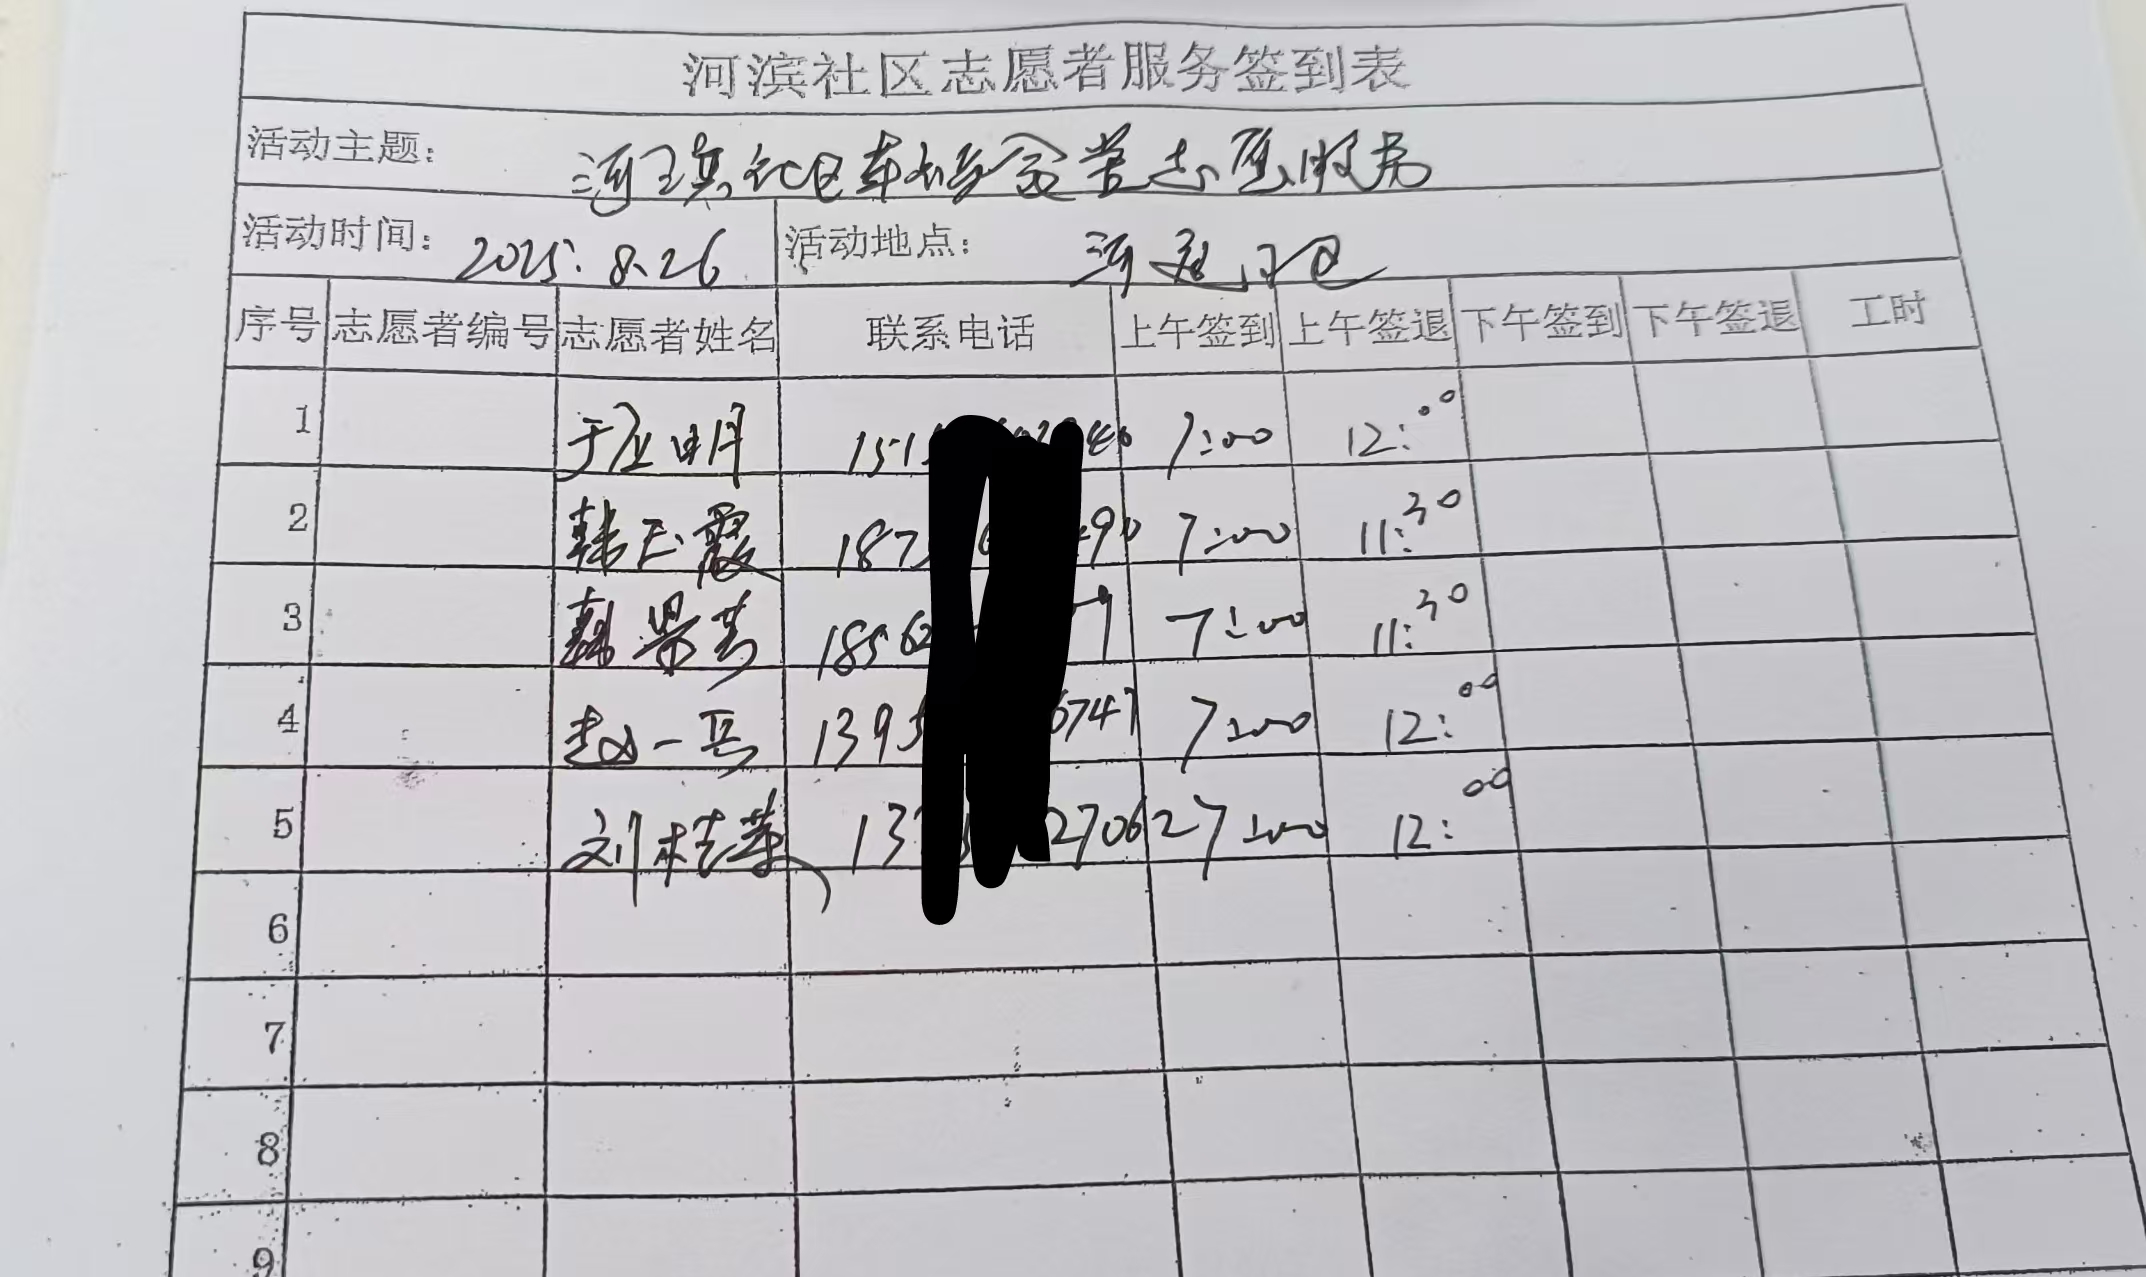 河滨社区志愿者服务签到表
活动主题: 河滨社区幸福食堂志愿服务
活动时间: 2025.8.26 活动地点: 河滨社区
序号 志愿者编号 志愿者姓名 联系电话 上午签到 上午签退 下午签到 下午签退 工时
1 于应明 151 40 7:00 12:00
2 韩玉霞 187 490 7:00 11:30
3 魏景芳 1856 9 7:00 11:30
4 赵一兵 1395 6747 7:00 12:00
5 刘桂荣 13 27062 7:00 12:00
6
7
8
9